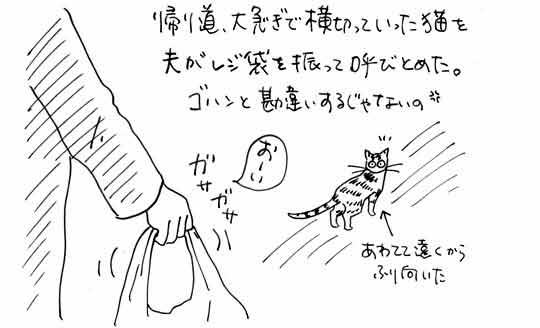 帰り道、大急ぎで横切っていった猫を
夫がレジ袋を振って呼びとめた。
ゴハンと勘違いするじゃないの
おーい
ガサ
ガサガサ
あわてて遠くから
ふり向いた